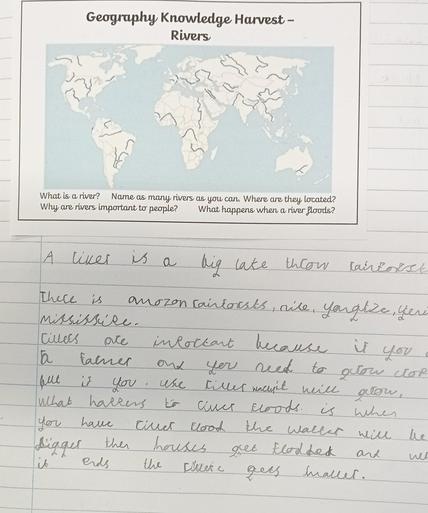 Geography Knowledge Harvest –
Rivers
What is a river? Name as many rivers as you can. Where are they located?
Why are rivers important to people? What happens when a river floods?
A river is a big lake throw rainforest
There is amazon rainforsts, nile, yangtze,
mississipe.
rivers are inportant because if you
a farmer and you need to grow crop
but if you use river will grow.
What happens to river floods is when
you have river flood the watter will be
bigger then houses get flodded and
it ends the gets smaller.